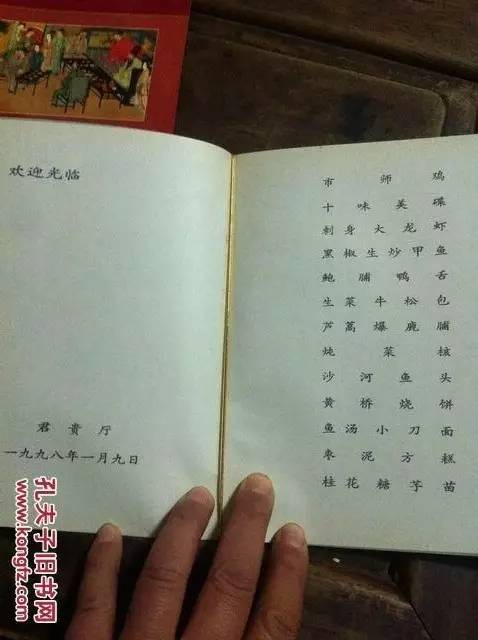 欢迎光临
君贵厅
一九九八年一月九日
市师鸡
十味美碟
刺身大龙虾
黑椒生炒甲鱼
鲍脯鸭舌
生菜牛松包
芦蒿爆鹿脯
炖菜核
沙河鱼头
黄桥烧饼
鱼汤小刀面
枣泥方糕
桂花糖芋苗
孔夫子旧书网
www.kongfz.com